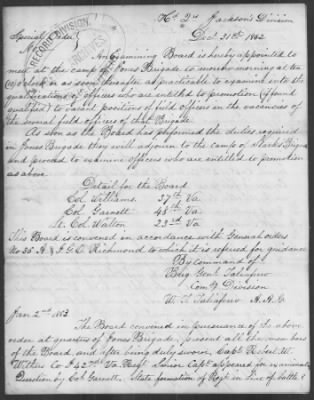 Hd Qrs Jackson's Division
Special Order Decr 31st 1862
RECORD DIVISION
ARCHIVES
An Examining Board is hereby appointed to
meet at the camp of Jones Brigade on morning at ten
o'clock or as soon thereafter as practicable to examine into the
qualifications of officers who are entitled to promotion (if found
qualified) to vacant positions of field officers in the vacancies of
the several field offices of that Brigade.
As soon as the Board has performed the duties required
in Jones Brigade they will adjourn to the camp of Starks Brigade
and proceed to examine officers who are entitled to promotion
as above.
Detail for the Board
Col. Williams. 37th Va.
Col. Garnett 48th Va.
Lt. Col. Walton 23rd Va.
This Board is convened in accordance with General orders
No 35 A & I G O Richmond to which it is referred for guidance
By command of
Brig Genl Taliaferro
Com'g Division
W. T. Taliaferro A.A.G.
Jan 2nd 1863
The Board convened in pursuance of the above
order at quarters of Jones Brigade, present all the mem-
bers of the Board, and after being duly sworn, Capt Robert W.
Withers Co I 42nd Va. Regt Senior Capt appeared for examination
Question by Col Garnett. State formation of Regt in line of battle &